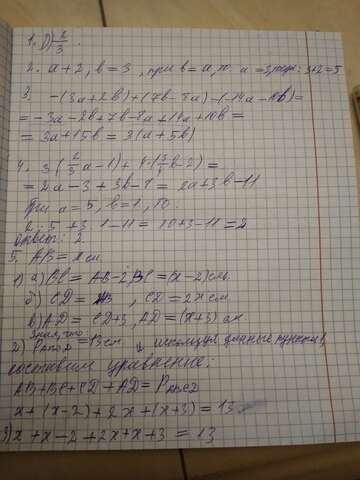 1. D) 2/3.
2. a + 2, b = 3, при b = a, то. a = 3, 3+2=5
3. -(3a+2b)+(7b-8a)-(-14a-10b)=
= -3a-2b+7b-8a+14a+10b=
= 3a+15b = 3(a+5b)
4. 3(2/3a-1)+4(3/4b-2)=
= 2a-3+3b-8= 2a+3b-11
При a=5, b=1, то:
2·5+3·1-11= 10+3-11=2
ответ: 2.
5. AB = x см.
1) а) BC = AB-2, BC=(x-2)см.
б) CD = , CD = 2x см
в) AD = CD+3, AD=(x+3) см
2) зная, что P = 13 см и используя данные пунктов,
составим уравнение:
AB+BC+CD+AD=P
x+(x-2)+2x+(x+3)=13
3) x+x-2+2x+x+3 = 13